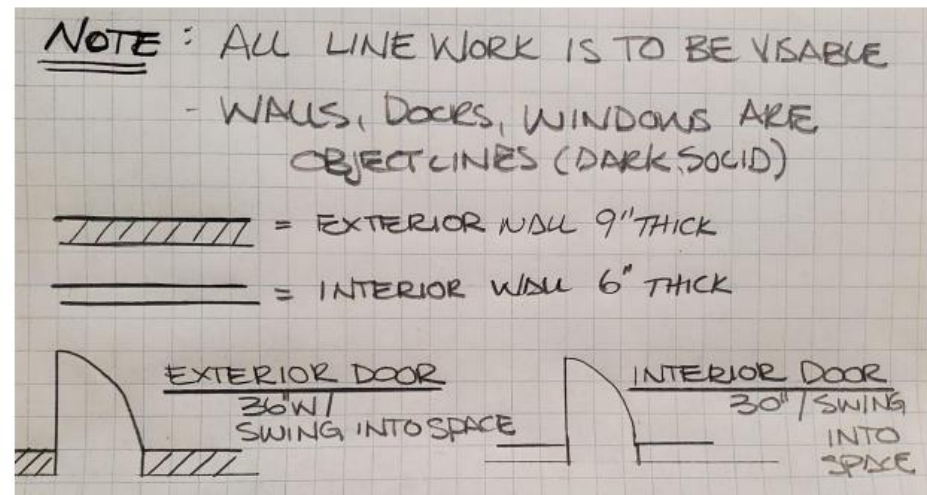 NOTE : ALL LINE WORK IS TO BE VISABLE
- WALLS, DOORS, WINDOWS ARE
OBJECT LINES (DARK, SOLID)
= EXTERIOR WALL 9" THICK
= INTERIOR WALL 6" THICK
EXTERIOR DOOR
36" W/
SWING INTO SPACE
INTERIOR DOOR
30" / SWING
INTO
SPACE